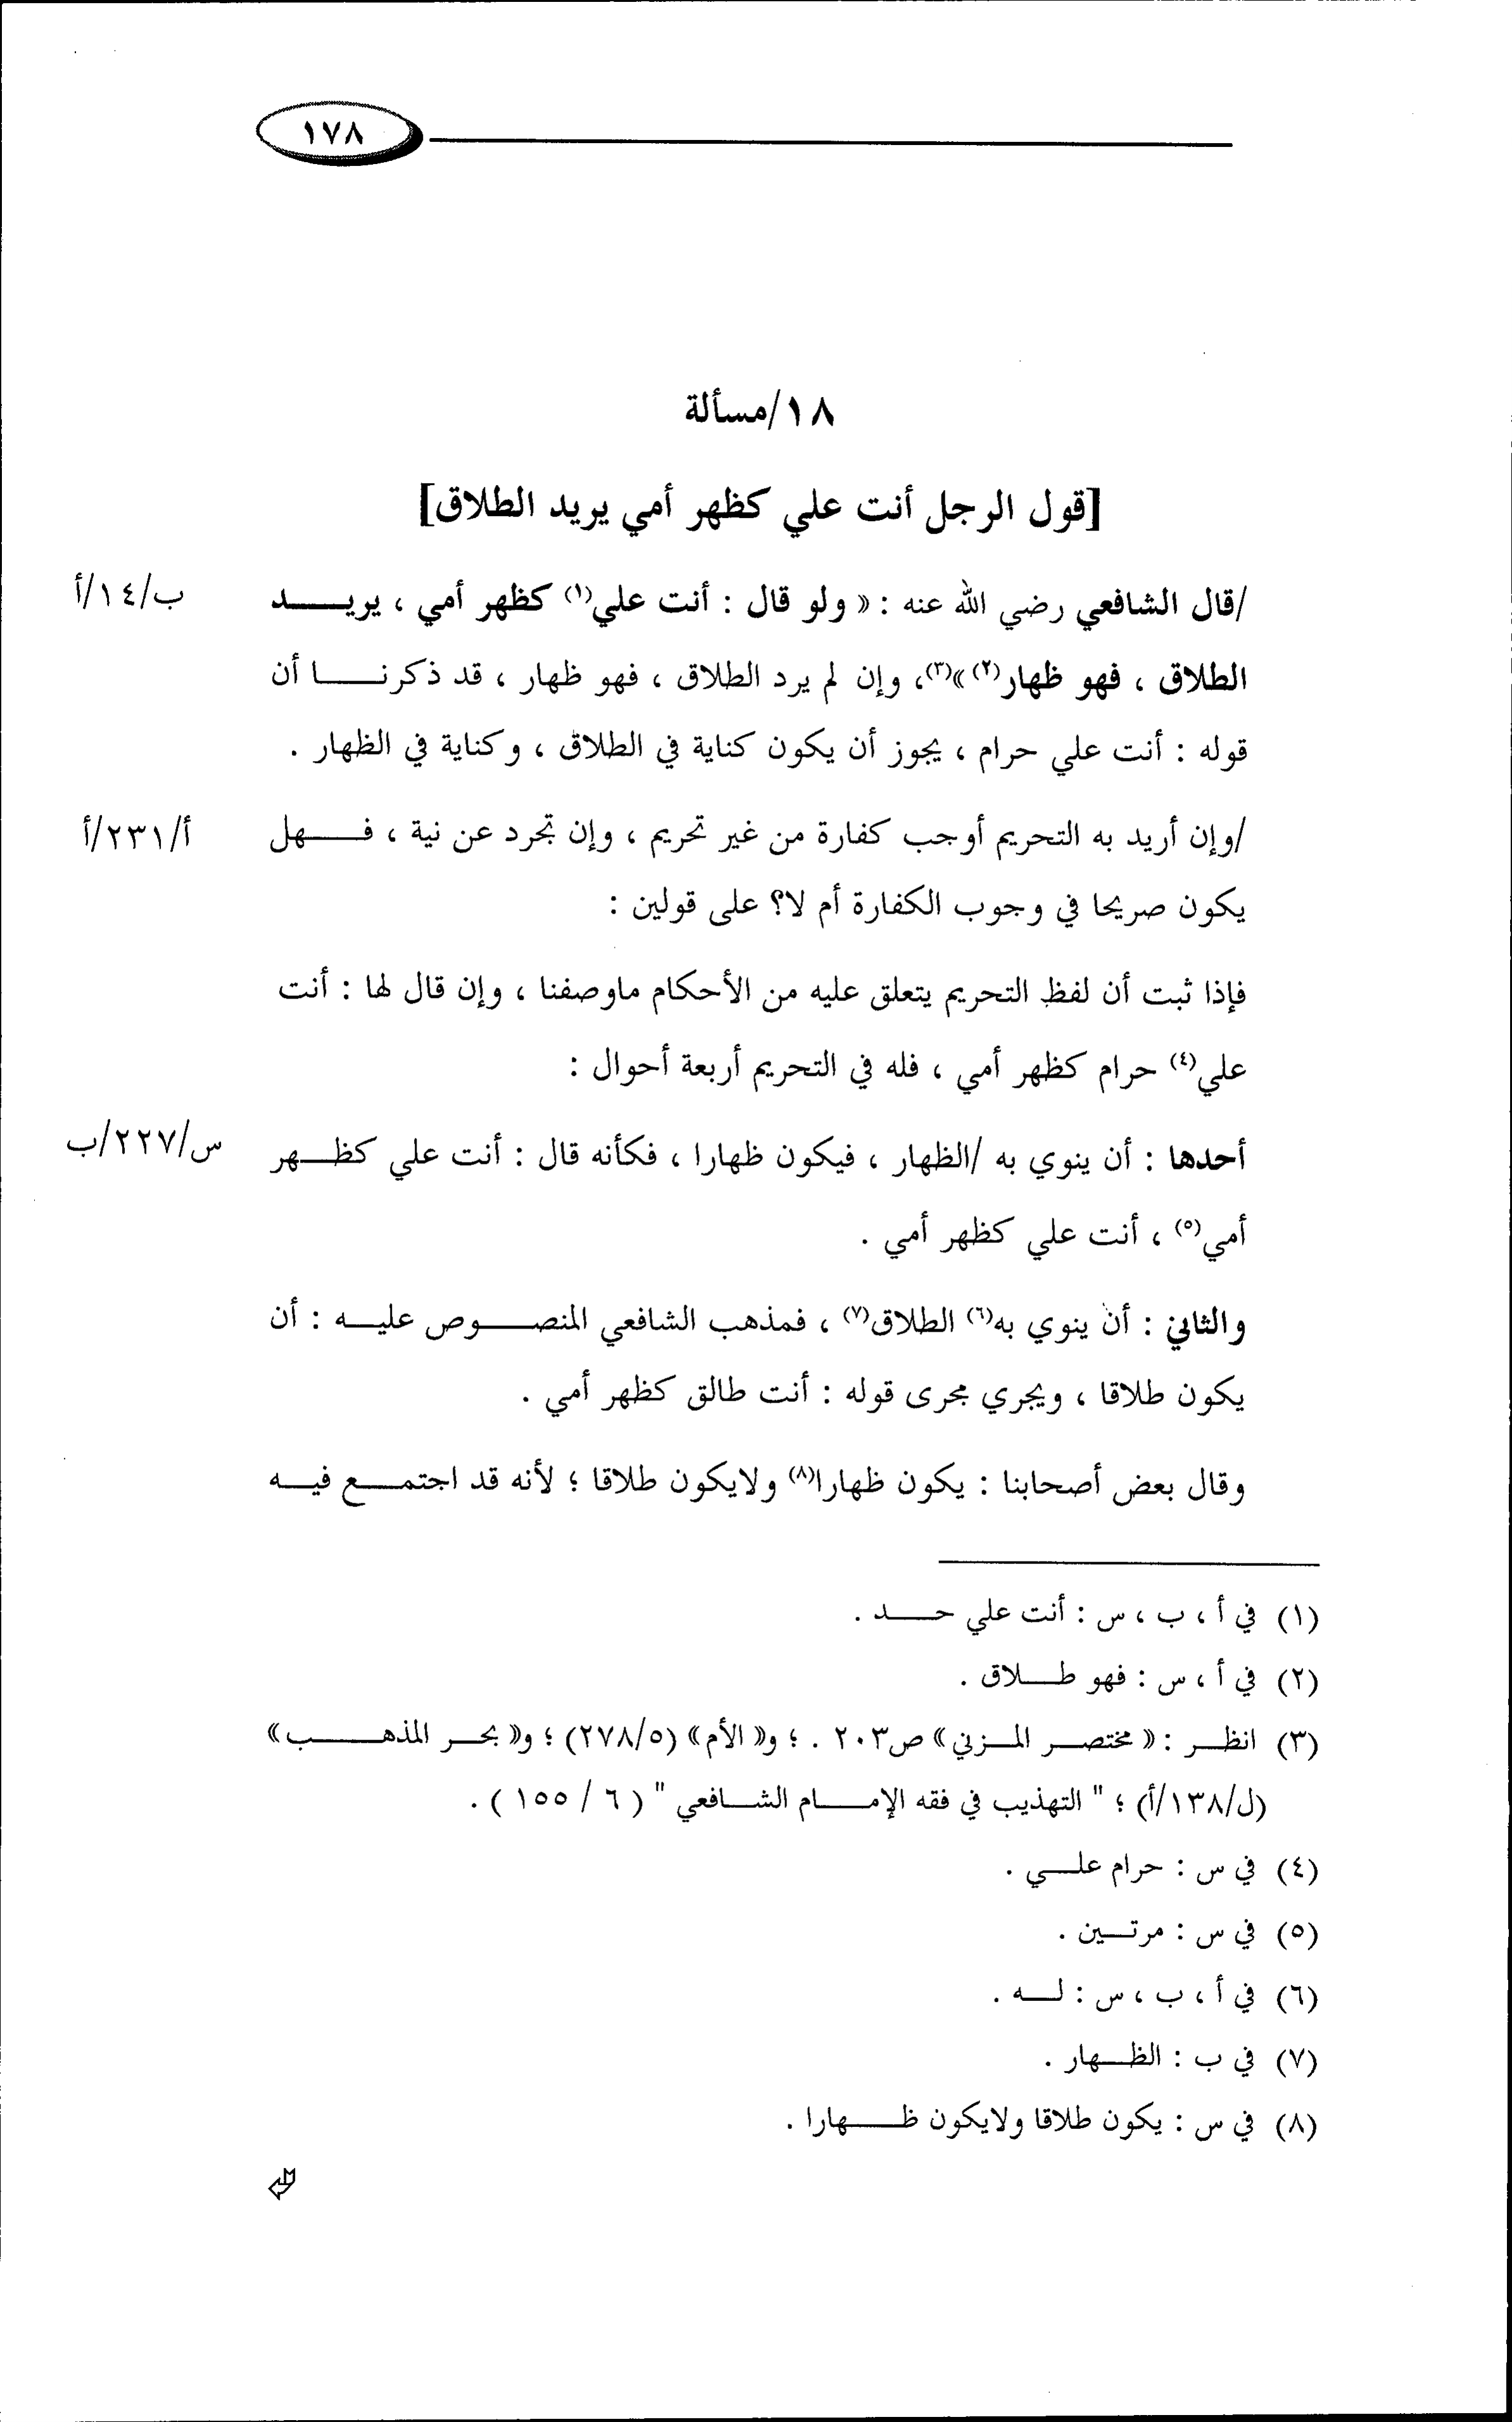 ١٧٨
١٨/مسألة
[قول الرجل أنت علي كظهر أمي يريد الطلاق]
/قال الشافعي رضي الله عنه : « ولو قال : أنت علي(١) كظهر أمي ، يريــــد
ب/١٤/أ
الطلاق ، فهو ظهار(٢) »(٣)، وإن لم يرد الطلاق ، فهو ظهار ، قد ذكرنــــا أن
قوله : أنت علي حرام ، يجوز أن يكون كناية في الطلاق ، وكناية في الظهار .
/وإن أريد به التحريم أوجب كفارة من غير تحريم ، وإن تجرد عن نية ، فــــهل
أ/٢٣١/أ
يكون صريحا في وجوب الكفارة أم لا؟ على قولين :
فإذا ثبت أن لفظ التحريم يتعلق عليه من الأحكام ماوصفنا ، وإن قال لها : أنت
علي(٤) حرام كظهر أمي ، فله في التحريم أربعة أحوال :
أحدها : أن ينوي به /الظهار ، فيكون ظهارا ، فكأنه قال : أنت علي كظــهر
س/٢٢٧/ب
أمي(٥) ، أنت علي كظهر أمي .
والثاني : أن ينوي به(٦) الطلاق(٧) ، فمذهب الشافعي المنصـــوص عليــه : أن
يكون طلاقا ، ويجري مجرى قوله : أنت طالق كظهر أمي .
وقال بعض أصحابنا : يكون ظهارا(٨) ولايكون طلاقا ؛ لأنه قد اجتمـــع فيــه
(١) في أ ، ب ، س : أنت علي حــــد .
(٢) في أ ، س : فهو طــــلاق .
(٣) انظــر : « مختصــر المــزني » ص٢٠٣ . ؛ و« الأم » (٢٧٨/٥) ؛ و« بحــر المذهــــب »
(ل/١٣٨/أ) ؛ " التهذيب في فقه الإمــــام الشــافعي " ( ٦ / ١٥٥ ) .
(٤) في س : حرام علــي .
(٥) في س : مرتــين .
(٦) في أ ، ب ، س : لــه .
(٧) في ب : الظــهار .
(٨) في س : يكون طلاقا ولايكون ظــــهارا .